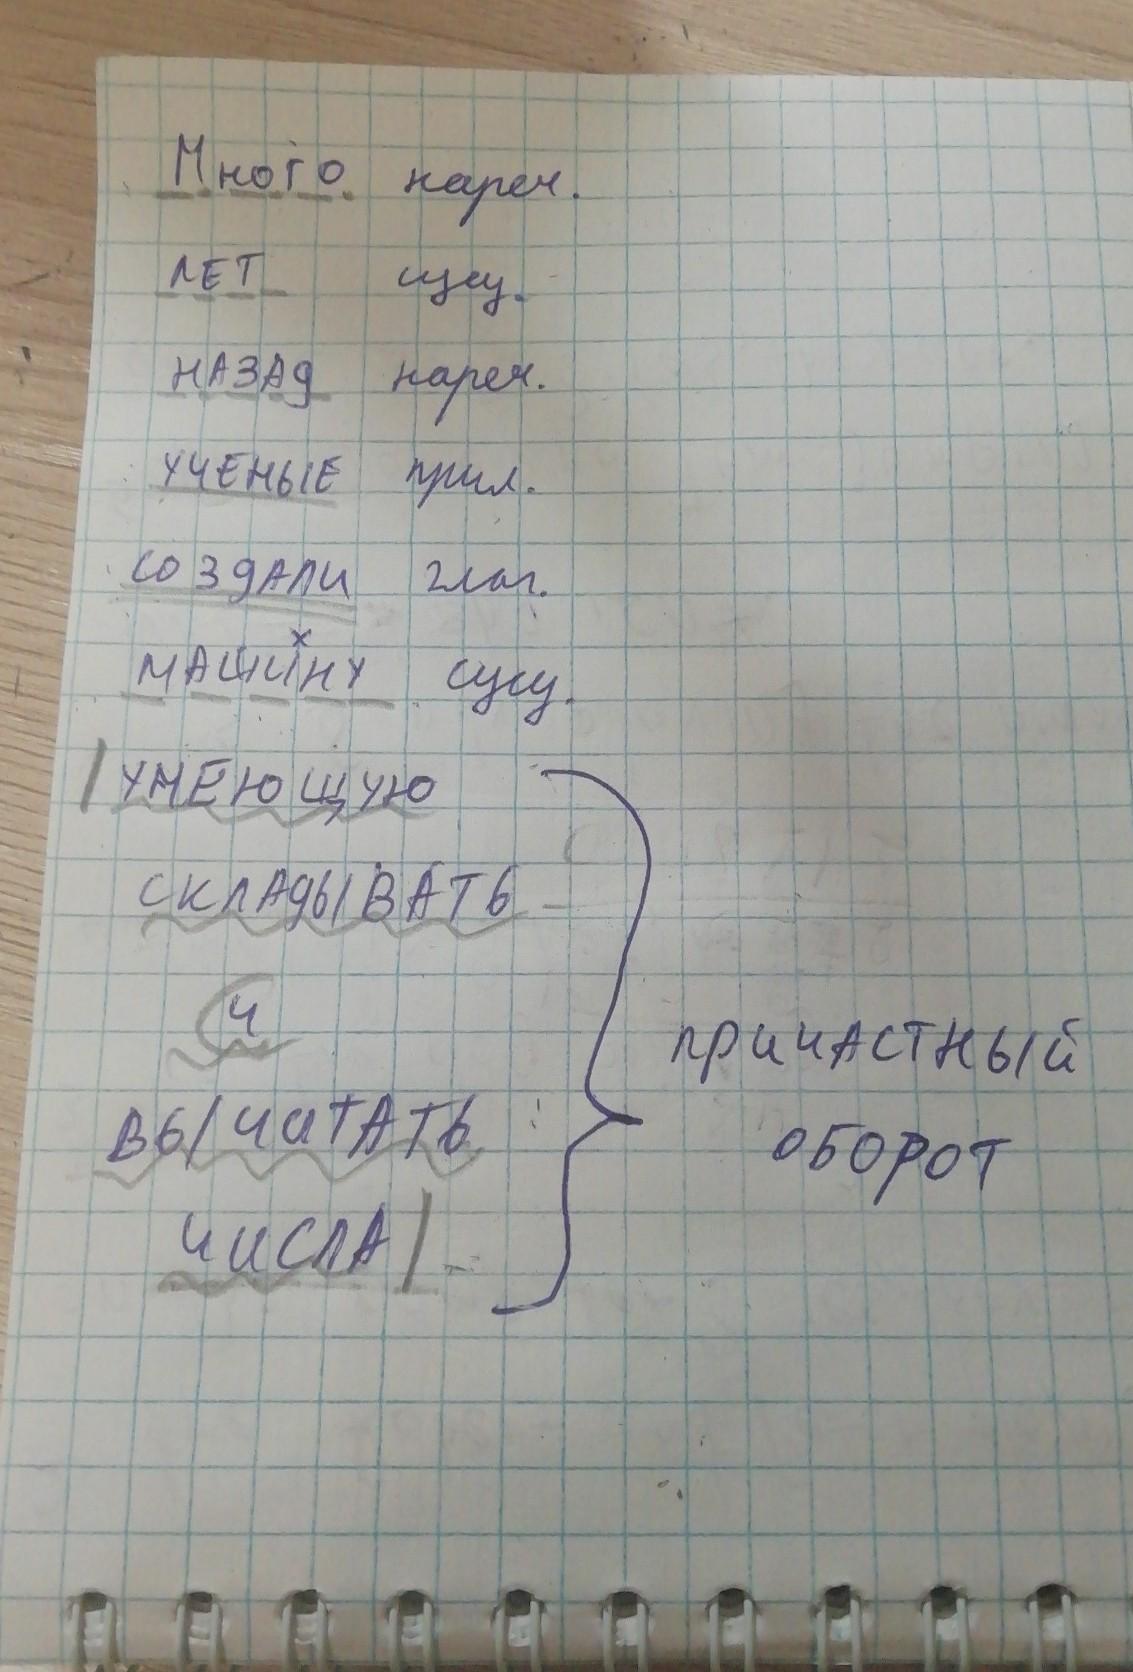 Много нареч.
ЛЕТ сущ.
НАЗАД нареч.
УЧЕНЫЕ прил.
СОЗДАЛИ глаг.
МАШИНУ сущ.
УМЕЮЩУЮ
СКЛАДЫВАТЬ
И
ВЫЧИТАТЬ
ЧИСЛА
ПРИЧАСТНЫЙ
ОБОРОТ